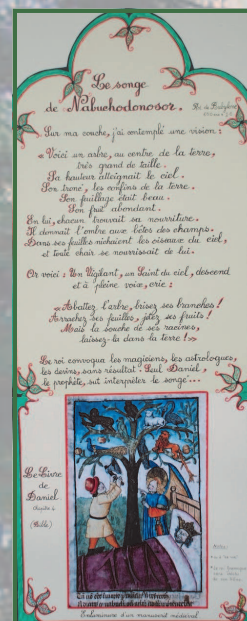 Le songe
de Nabuchodonosor. Roi de Babylone
Sur ma couche, j'ai contemplé une vision :
« Voici un arbre, au centre de la terre,
très grand de taille.
Sa hauteur atteignait le ciel.
Son trone, les confins de la terre.
Son feuillage était beau.
Son fruit abondant.
En lui, chacun trouvait sa nourriture.
Il donnait l'ombre aux bêtes des champs.
Dans ses feuilles nichaient les oiseaux du ciel,
et toute chair se nourrissait de lui.
Or voici : Un Vigilant, un Saint du ciel, descend
et à pleine voix, crie :
« Abattez l'arbre, brisez ses branches !
Arrachez ses feuilles, jetez ses fruits !
Mais la souche de ses racines,
laissez-la dans la terre ! »
Le roi convoqua les magiciens, les astrologues,
les devins, sans résultat. Seul Daniel,
le prophète, sut interpréter le songe...
Le Livre
de
Daniel
(Bible)
Enluminure d'un manuscrit médiéval